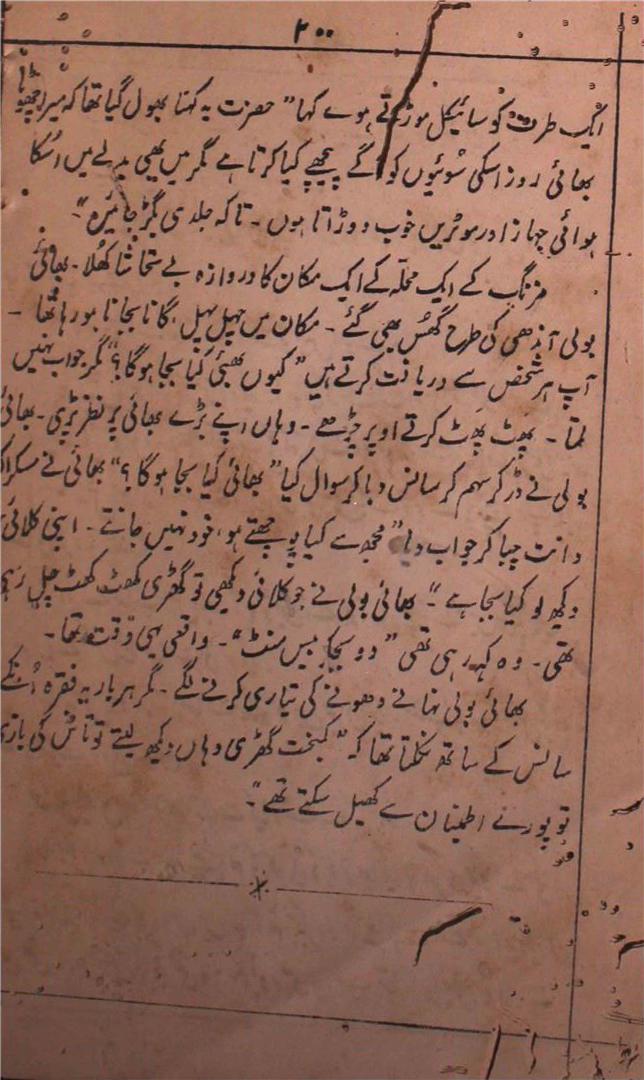 ۲۰۰
ایک طرف کو سائیکل موڑتے ہوے کہا” حضرت یہ کہنا بھول گیا تھا کہ میرا چھوٹا
بھائی روز اسکی سُوئیوں کو آگے پیچھے کیا کرتا ہے مگر میں بھی بدلے میں اُسکا
ہوائی جہاز اور موٹریں خوب دوڑاتا ہوں ۔ تاکہ جلدی بگڑ جائیں“۔
مزنگ کے ایک محلّہ کے ایک مکان کا دروازہ بے تحاشا کھُلا ۔ بھائی
بولی آندھی کی طرح گھُس بھی گئے ۔ مکان میں چہل پہل ، گانا بجانا ہو رہا تھا ۔
آپ ہر شخص سے دریافت کرتے ہیں” کیوں بھئی کیا بجا ہوگا؟“ مگر جواب نہیں
ملتا ۔ پھٹ پھٹ کرتے اوپر چڑھے ۔ وہاں اپنے بڑے بھائی پر نظر پڑی ۔ بھائی
بولی نے ڈر کر سہم کر سانس دبا کر سوال کیا” بھائی کیا بجا ہوگا؟“ بھائی نے مسکرا کر
دانت چبا کر جواب دیا” مجھ سے کیا پوچھتے ہو، خود نہیں جانتے ۔ اپنی کلائی
دیکھ لو کیا بجا ہے“۔ بھائی بولی نے جو کلائی دیکھی تو گھڑی کھٹ کھٹ چل رہی
تھی ۔ وہ کہہ رہی تھی” دو بجکر بیس منٹ“۔ واقعی یہی وقت تھا ۔
بھائی بولی نہانے دھونے کی تیاری کرنے لگے ۔ مگر ہر بار یہ فقرہ اُنکے
سانس کے ساتھ نکلتا تھا کہ” کمبخت گھڑی وہاں دیکھ لیتے تو تاش کی بازی
تو پورے اطمینان سے کھیل سکتے تھے“۔